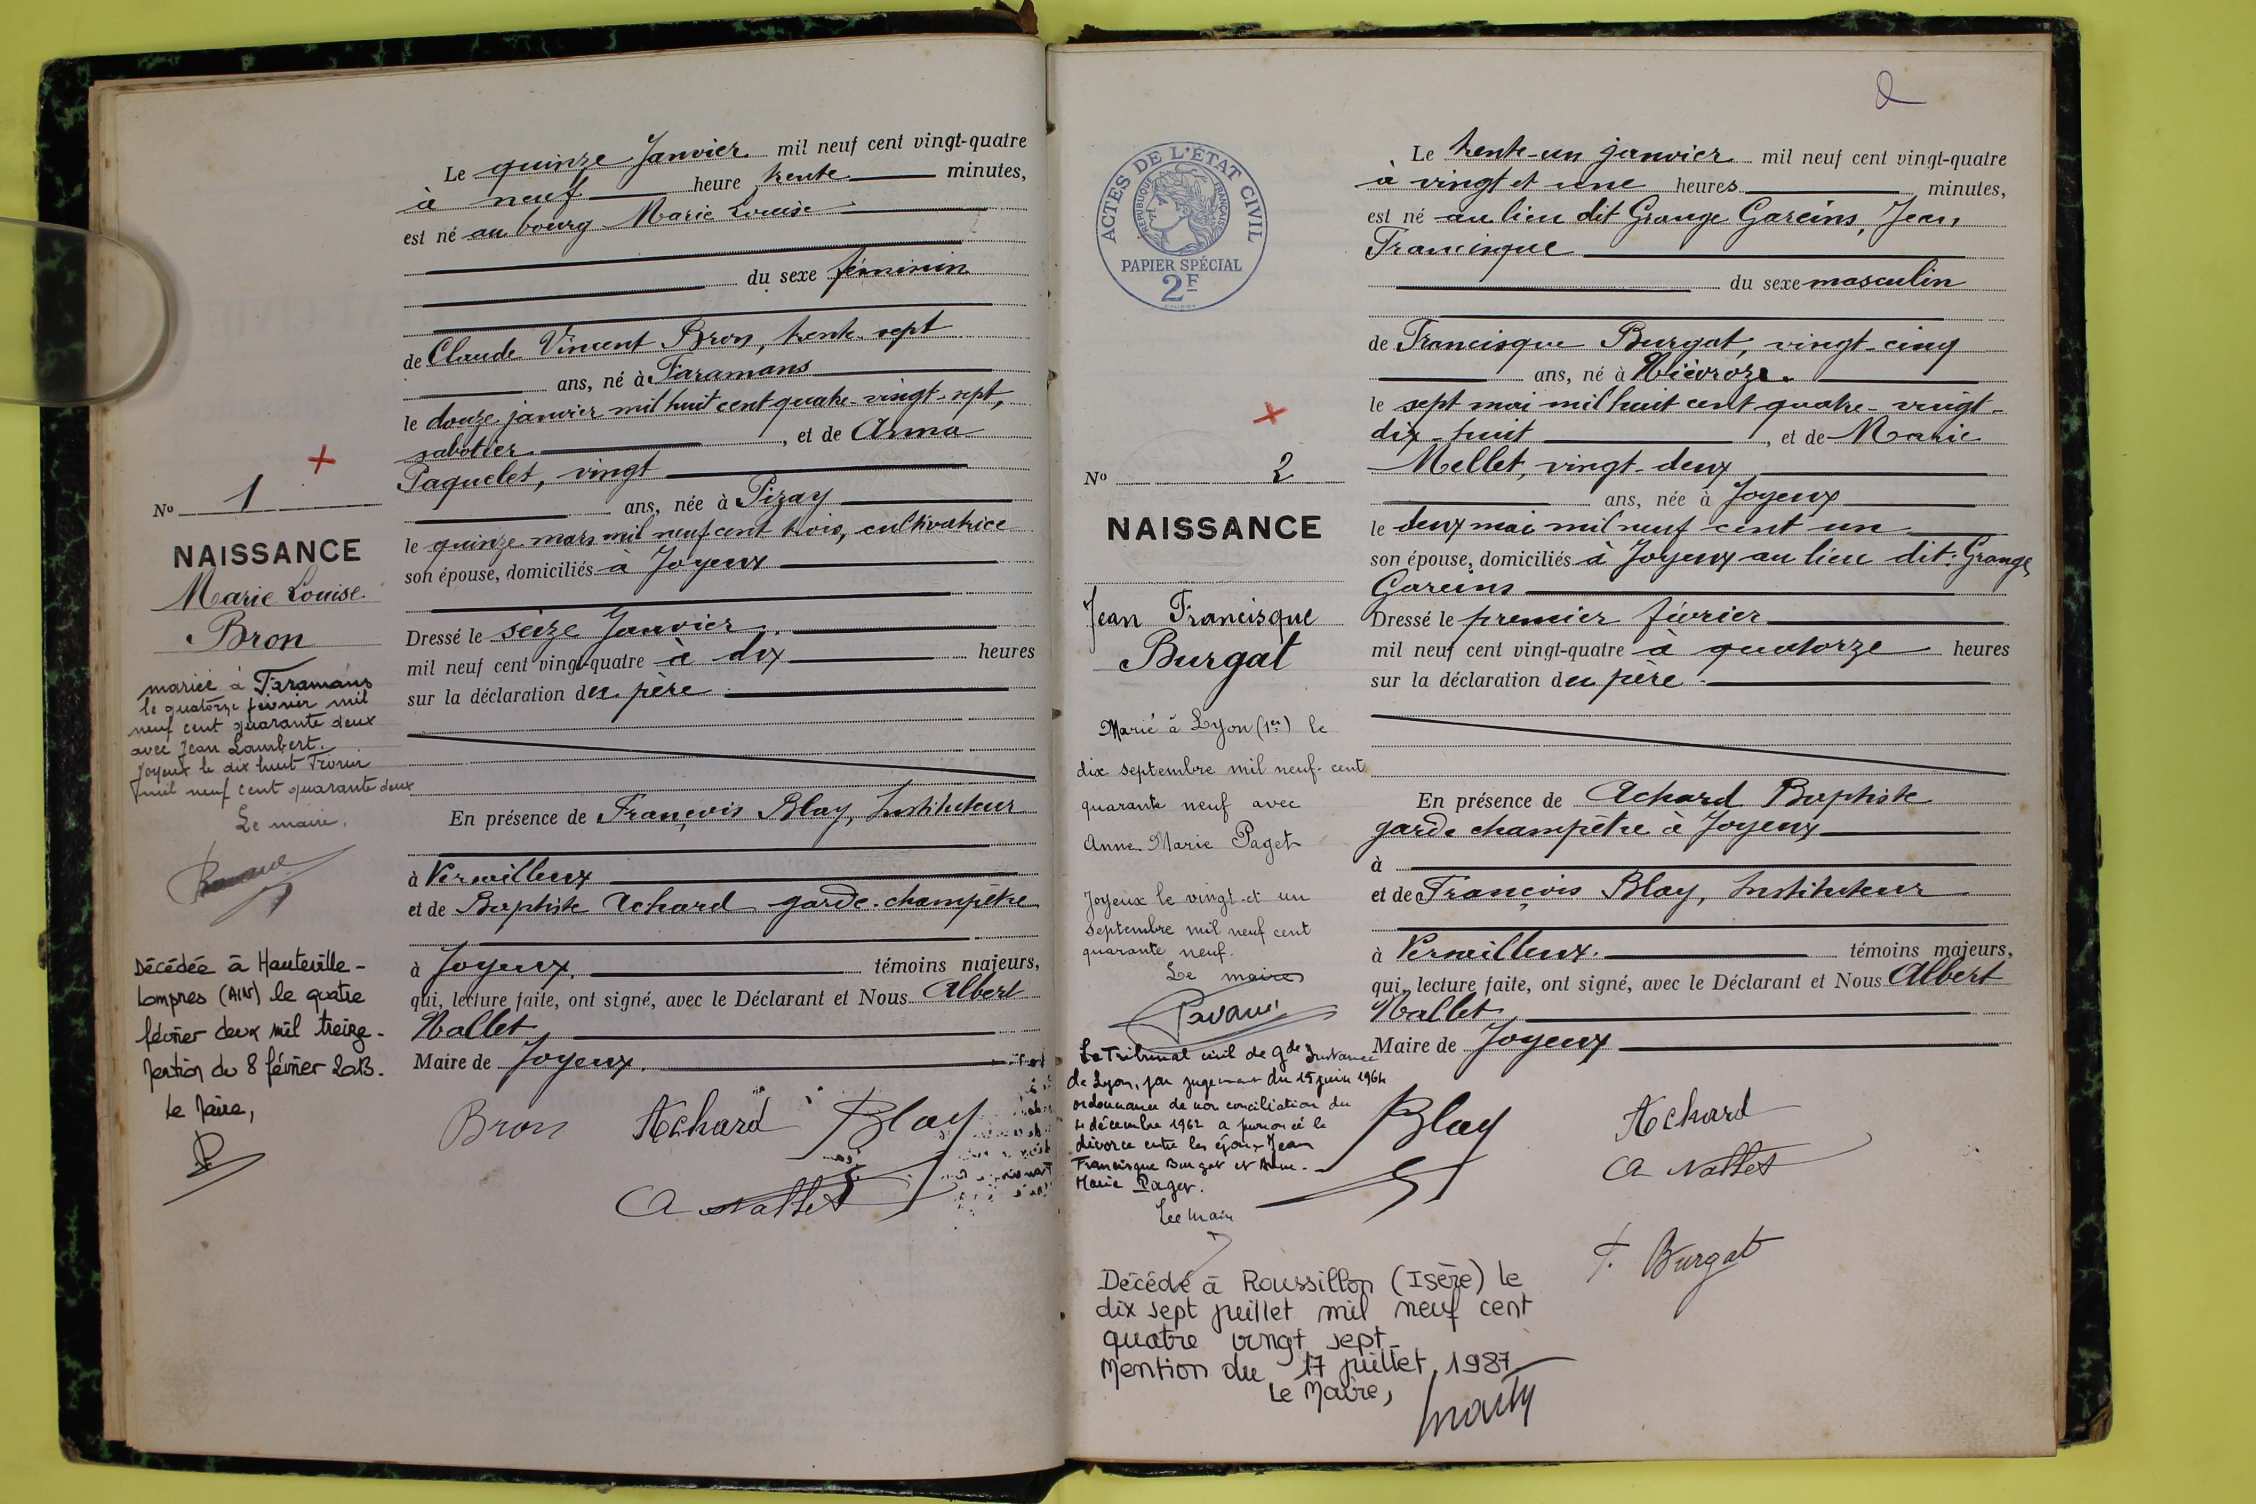 Le quinze Janvier mil neuf cent vingt-quatre
à neuf heure trente minutes,
est né au bourg Marie Louise
du sexe féminin
de Claude Vincent Bron, trente-sept
ans, né à Faramans
le douze janvier mil huit cent quatre-vingt-sept,
sabotier, et de Anna
Paquelet, vingt
ans, née à Pizay
le quinze mars mil neuf cent trois, cultivatrice
son épouse, domiciliés à Joyeux
Dressé le seize Janvier
mil neuf cent vingt-quatre à dix heures
sur la déclaration du père
En présence de François Blay, Instituteur
à Versailleux
et de Baptiste Achard garde-champêtre
à Joyeux, témoins majeurs,
qui, lecture faite, ont signé, avec le Déclarant et Nous Albert
Nallet
Maire de Joyeux.
Bron Achard Blay
A Nallet
No 1
NAISSANCE
Marie Louise
Bron
mariée à Faramans
le quatorze février mil
neuf cent quarante deux
avec Jean Lambert.
Joyeux le dix huit Février
mil neuf cent quarante deux
Le maire,
Décédée à Hauteville-
Lompnes (AIN) le quatre
février deux mil treize-
Mention du 8 février 2013.
Le Maire,
2
ACTES DE L'ÉTAT CIVIL
RÉPUBLIQUE FRANÇAISE
PAPIER SPÉCIAL
2F
No 2
NAISSANCE
Jean Francisque
Burgat
Marié à Lyon (1er) le
dix septembre mil neuf-cent
quarante neuf avec
Anne Marie Paget
Joyeux le vingt-et un
septembre mil neuf cent
quarante neuf.
Le maire
Le Tribunal civil de Gde Instance
de Lyon, par jugement du 15 juin 1964
ordonnance de non conciliation du
décembre 1962 a prononcé le
divorce entre les époux Jean
Francisque Burgat et Anne-
Marie Paget.
Le Maire
Décédé à Roussillon (Isère) le
dix sept juillet mil neuf cent
quatre vingt sept-
Mention du 17 juillet 1987
Le Maire,
Le trente-un janvier mil neuf cent vingt-quatre
à vingt et une heures minutes,
est né au lieu dit Grange Garcins, Jean
Francisque
du sexe masculin
de Francisque Burgat, vingt-cinq
ans, né à Niévroz
le sept mai mil huit cent quatre-vingt-
dix-huit, et de Marie
Mellet, vingt-deux
ans, née à Joyeux
le deux mai mil neuf cent un
son épouse, domiciliés à Joyeux au lieu dit Grange
Garcins
Dressé le premier février
mil neuf cent vingt-quatre à quatorze heures
sur la déclaration du père
En présence de Achard Baptiste
garde champêtre à Joyeux
à
et de François Blay, Instituteur
à Versailleux. témoins majeurs,
qui, lecture faite, ont signé, avec le Déclarant et Nous Albert
Nallet
Maire de Joyeux
Blay
Achard
A Nallet
F. Burgat